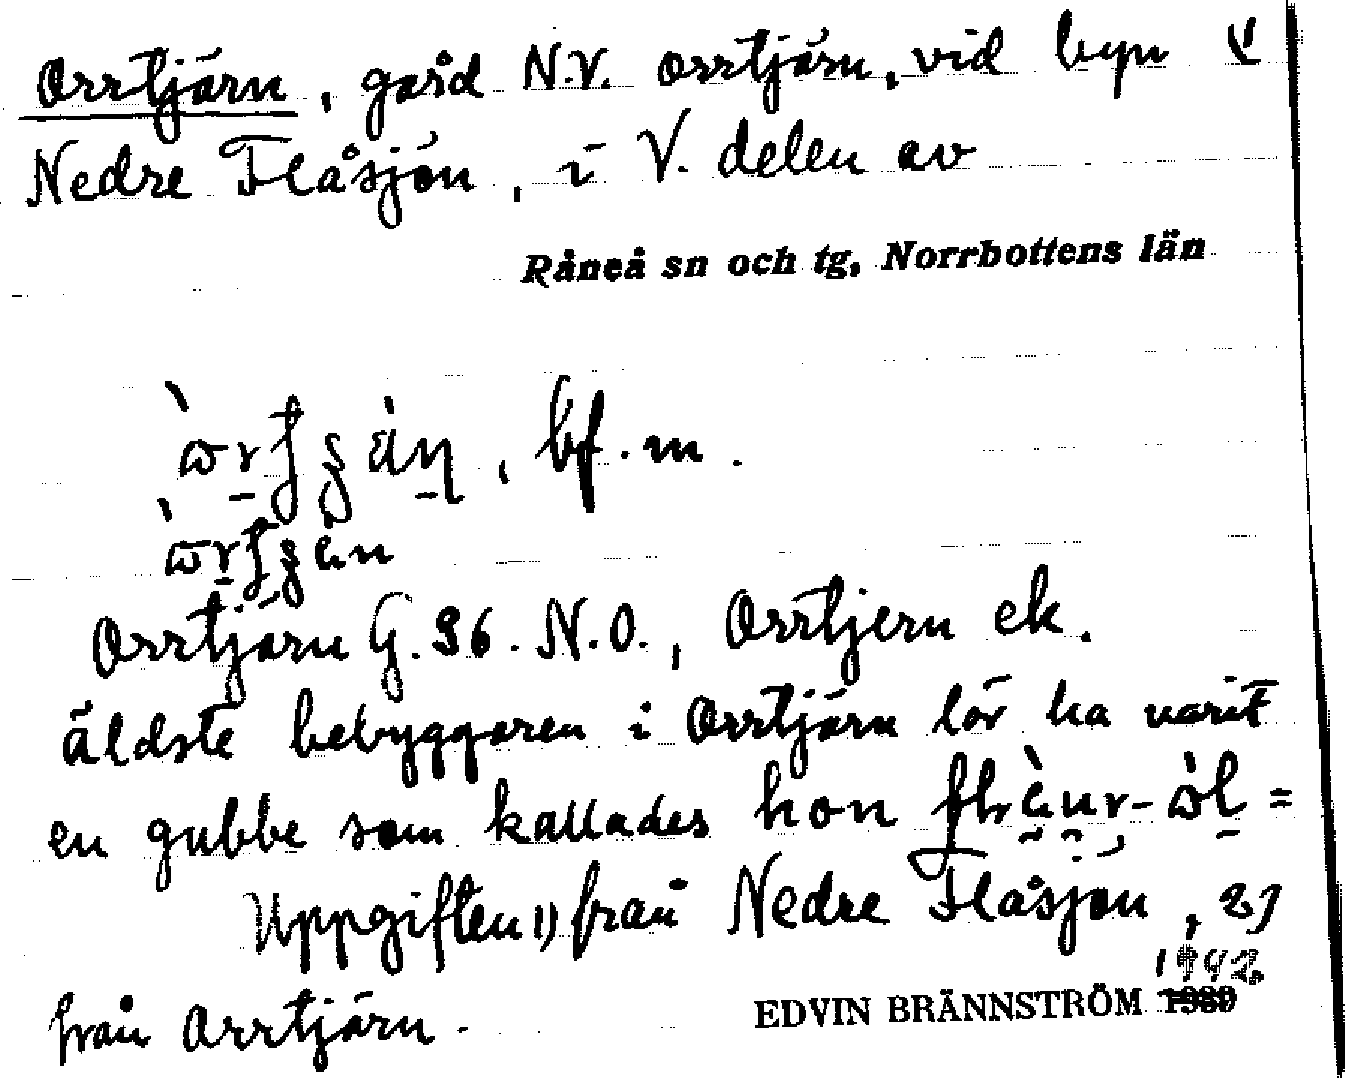 Orrtjärn, gård N.V. Orrtjärn, vid byn
Nedre Flåsjön, i V. delen av
Råneå sn och tg, Norrbottens län
, bf. m.
Orrtjärn G. 36. N.O., Orrtjern ek.
äldste bebyggaren i Orrtjärn lör ha varit
en gubbe som kallades hon =
Uppgiften 1) från Nedre Flåsjön, 2)
1942
från Orrtjärn.
EDVIN BRÄNNSTRÖM 1939